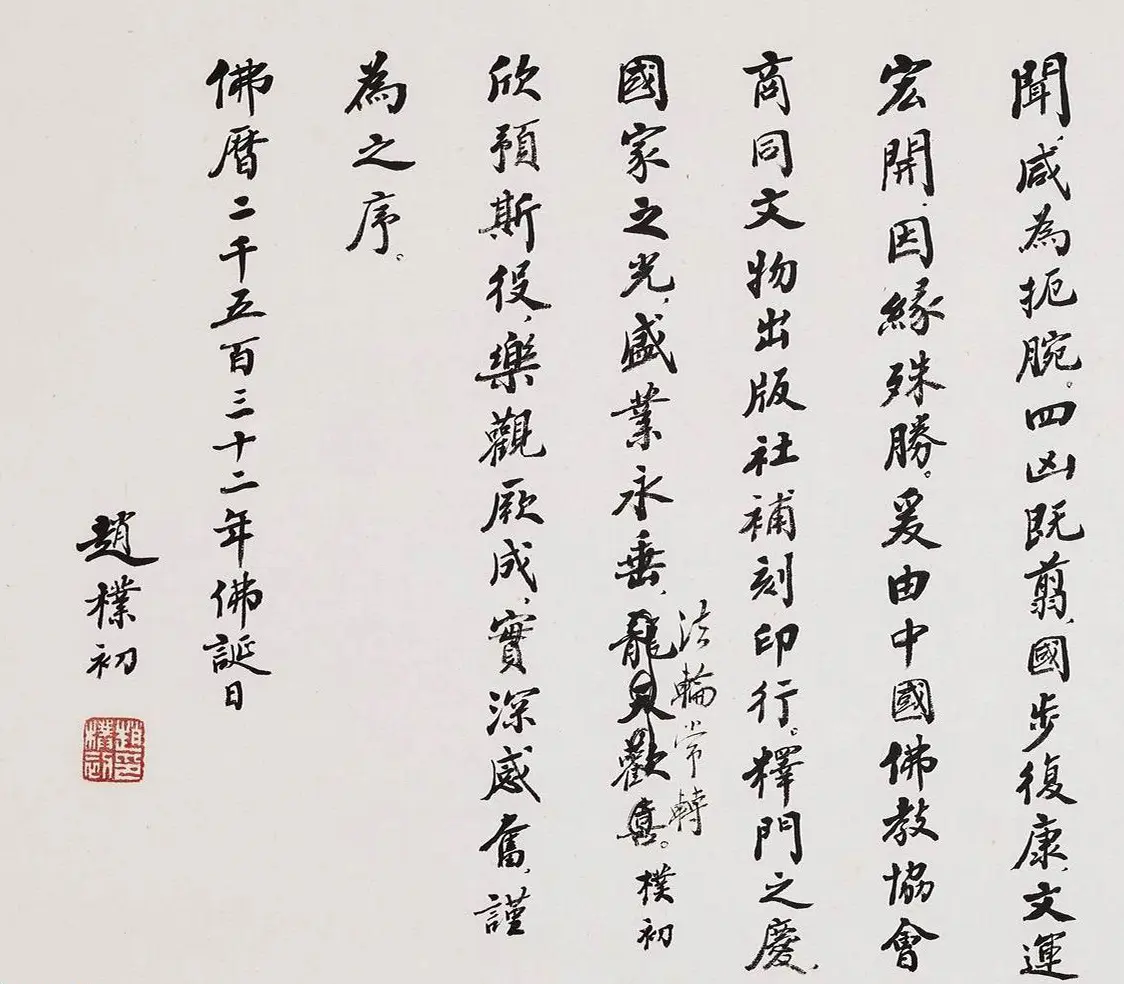 聞，咸為扼腕。四凶既翦，國步復康，文運
宏開，因緣殊勝。爰由中國佛教協會
商同文物出版社補刻印行。釋門之慶，
國家之光，盛業永垂，龍天歡喜。樸初
法輪常轉
欣預斯役，樂觀厥成，實深感奮，謹
為之序。
佛曆二千五百三十二年佛誕日
趙樸初
趙樸初印